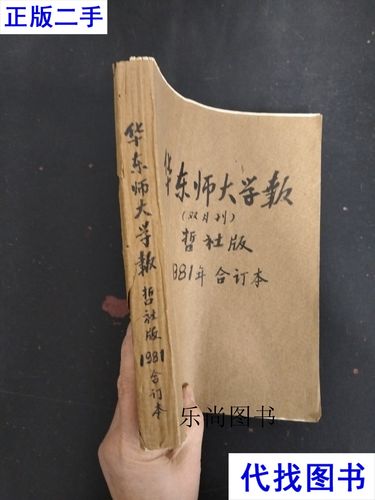 正版二手
华东师大学报
哲社版
1981
合订本
华东师大学报
（双月刊）
哲社版
1981年合订本
乐尚图书
代找图书